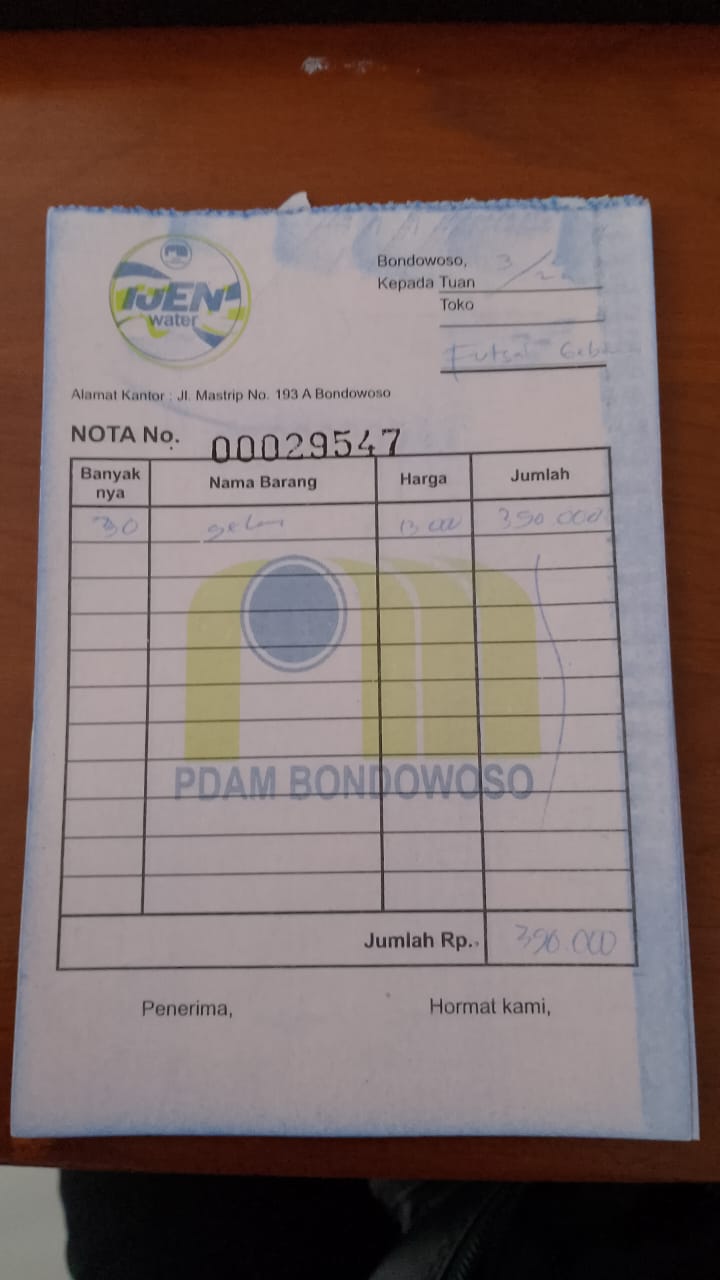 IJEN
water
Bondowoso, 3/2
Kepada Tuan
Toko
Futsal
Alamat Kantor : Jl. Mastrip No. 193 A Bondowoso
NOTA No. 00029547
Banyak nya Nama Barang Harga Jumlah
30 13.000 390.000
PDAM BONDOWOSO
Jumlah Rp. 390.000
Penerima, Hormat kami,